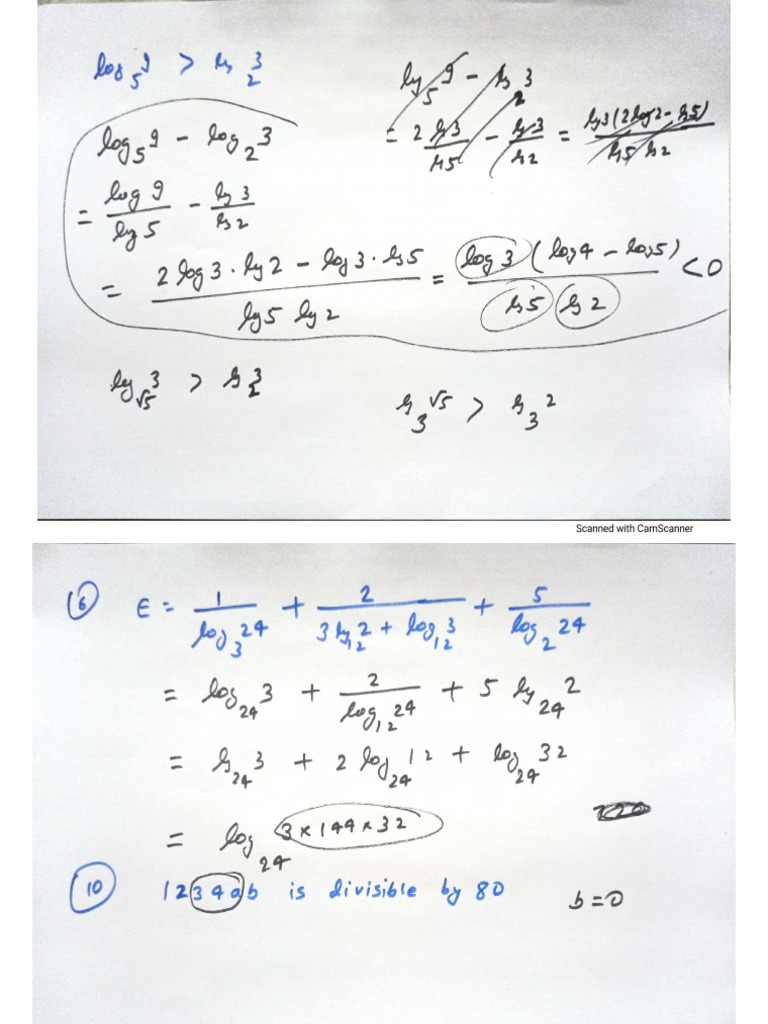 log₅9 > log₂3
log₅9 - log₂3
= log₅9 - log₂3
= log 9 / log 5 - log 3 / log 2
= 2 log 3 / log 5 - log 3 / log 2 = log 3 (2 log 2 - log 5) / log 5 log 2
= 2 log 3 · log 2 - log 3 · log 5 / log 5 log 2 = log 3 (log 4 - log 5) / log 5 log 2 < 0
log_√5 3 > log₂3
log₃√5 > log₃2
Scanned with CamScanner
6 E = 1 / log₃24 + 2 / (3 log₁₂2 + log₁₂3) + 5 / log₂24
= log₂₄3 + 2 / log₁₂24 + 5 log₂₄2
= log₂₄3 + 2 log₂₄12 + log₂₄32
= log₂₄ 3 × 144 × 32
10 1234ab is divisible by 80 b = 0